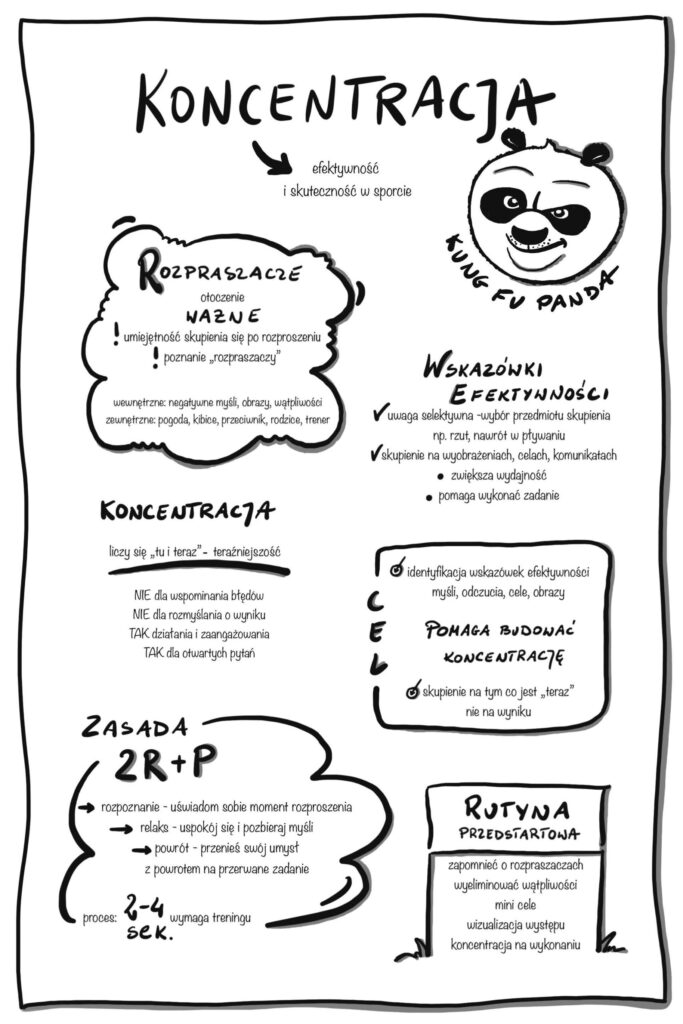 KONCENTRACJA
efektywność
i skuteczność w sporcie
KUNG FU PANDA
ROZPRASZACZE
otoczenie
WAŻNE
! umiejętność skupienia się po rozproszeniu
! poznanie „rozpraszaczy”
wewnętrzne: negatywne myśli, obrazy, wątpliwości
zewnętrzne: pogoda, kibice, przeciwnik, rodzice, trener
WSKAZÓWKI
EFEKTYWNOŚCI
✓ uwaga selektywna -wybór przedmiotu skupienia
np. rzut, nawrót w pływaniu
✓ skupienie na wyobrażeniach, celach, komunikatach
• zwiększa wydajność
• pomaga wykonać zadanie
KONCENTRACJA
liczy się „tu i teraz”- teraźniejszość
NIE dla wspominania błędów
NIE dla rozmyślania o wyniku
TAK działania i zaangażowania
TAK dla otwartych pytań
CEL
identyfikacja wskazówek efektywności
myśli, odczucia, cele, obrazy
POMAGA BUDOWAĆ
KONCENTRACJĘ
skupienie na tym co jest „teraz”
nie na wyniku
ZASADA
2R+P
→ rozpoznanie - uświadom sobie moment rozproszenia
→ relaks - uspokój się i pozbieraj myśli
→ powrót - przenieś swój umysł
z powrotem na przerwane zadanie
proces: 2-4 wymaga treningu
sek.
RUTYNA
PRZEDSTARTOWA
zapomnieć o rozpraszaczach
wyeliminować wątpliwości
mini cele
wizualizacja występu
koncentracja na wykonaniu